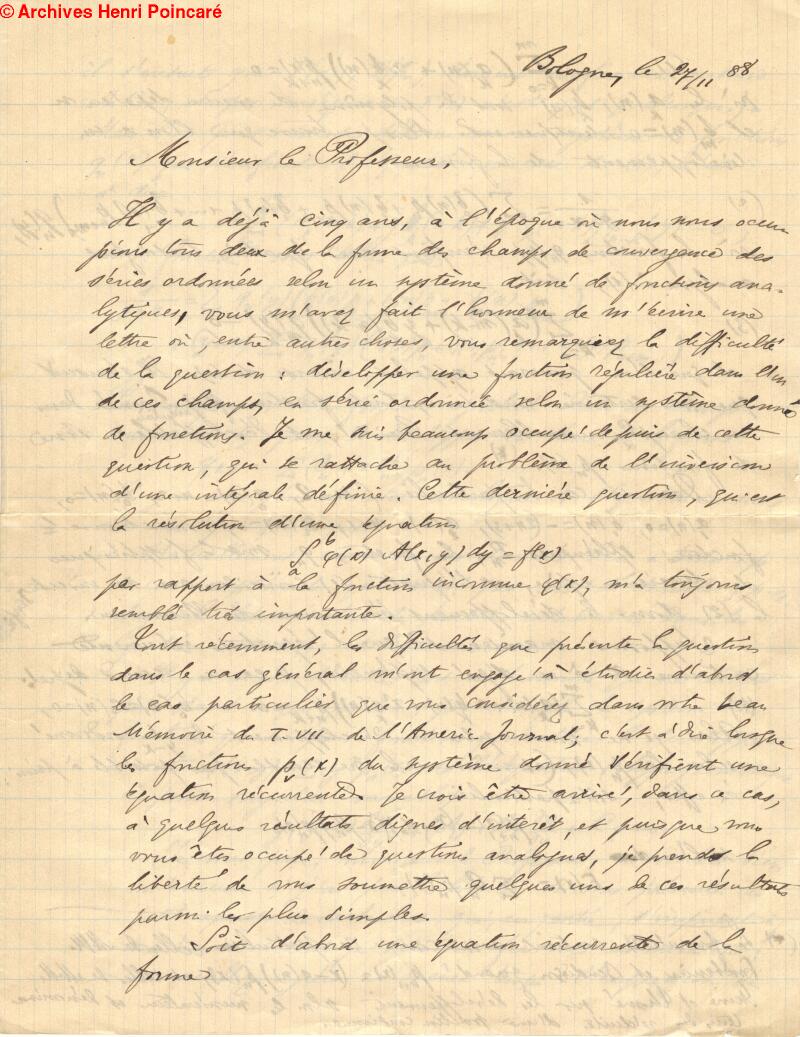 © Archives Henri Poincaré
Bologne, le 27/11 88
Monsieur le Professeur,
Il y a déjà cinq ans, à l'époque où nous nous occu-
pions tous deux de la forme des champs de convergence des
séries ordonnées selon un système donné de fonctions ana-
lytiques, vous m'avez fait l'honneur de m'écrire une
lettre où, entre autres choses, vous remarquiez la difficulté
de la question: développer une fonction régulière dans l'un
de ces champs, en série ordonnée selon un système donné
de fonctions. Je me suis beaucoup occupé depuis de cette
question, qui se rattache au problème de l'inversion
d'une intégrale définie. Cette dernière question, qui est
la résolution d'une équation
∫_a^b φ(x) A(x,y) dy = f(x)
par rapport à la fonction inconnue φ(x), m'a toujours
semblé très importante.
Tout récemment, les difficultés que présente la question
dans le cas général m'ont engagé à étudier d'abord
le cas particulier que vous considérez dans votre beau
Mémoire du T. VII de l'Americ Journal; c'est à dire lorsque
les fonctions p_ν(x) du système donné vérifient une
équation récurrente. Je crois être arrivé, dans ce cas,
à quelques résultats dignes d'intérêt, et puisque vous
vous êtes occupé de questions analogues, je prends la
liberté de vous soumettre quelques uns de ces résultats
parmi les plus simples.
Soit d'abord une équation récurrente de la
forme